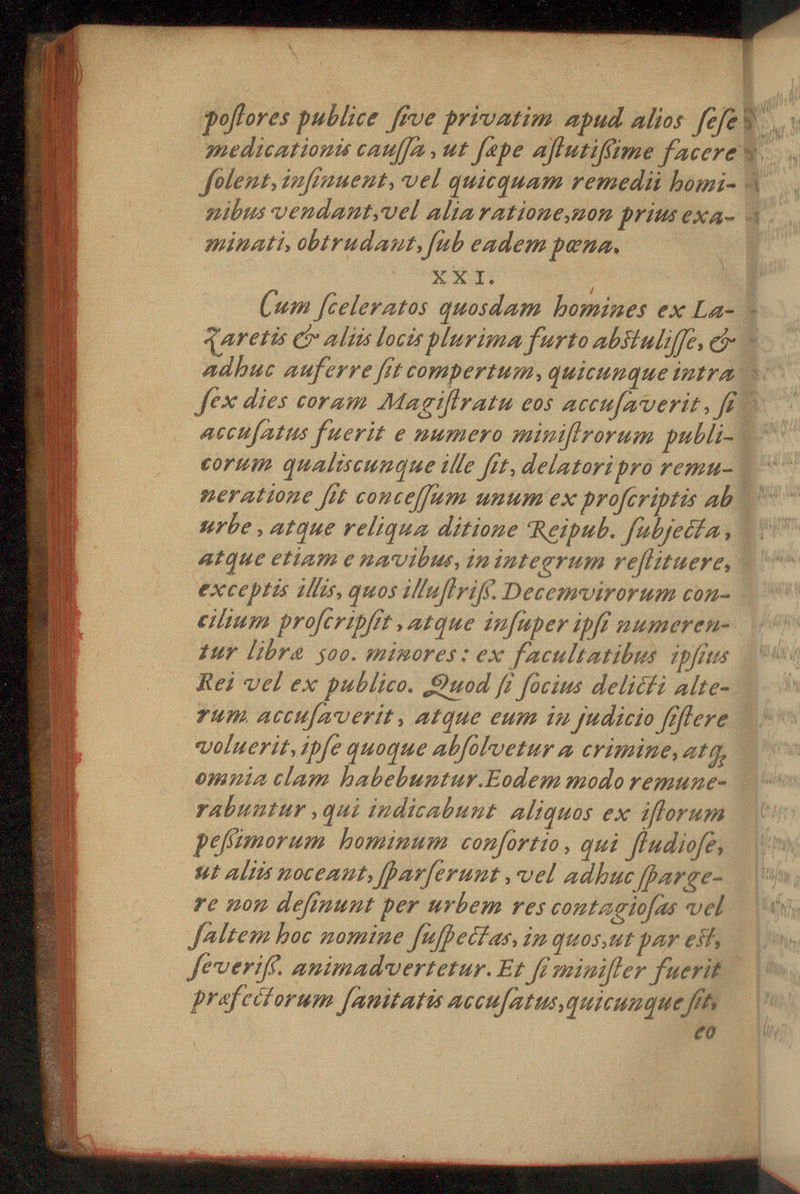 poſtores publice ſive privatim apud alios ſeſe
medicationis cauſſa, ut ſæpe aſtutiſſime facere
ſolent, inſinuent, vel quicquam remedii homi-
nibus vendant, vel alia ratione, non prius exa-
minati, obtrudant, ſub eadem pœna.
XXI.
Cum ſceleratos quosdam homines ex La-
zaretis & aliis locis plurima furto abſtuliſſe, &
adhuc auferre ſit compertum, quicunque intra
ſex dies coram Magiſtratu eos accuſaverit, ſi
accuſatus fuerit e numero miniſtrorum publi-
corum qualiscunque ille ſit, delatori pro remu-
neratione ſit conceſſum unum ex proſcriptis ab
urbe, atque reliqua ditione Reipub. ſubjecta,
atque etiam e navibus, in integrum reſtituere,
exceptis illis, quos illuſtriſſ. Decemvirorum con-
cilium proſcripſit, atque inſuper ipſi numeren-
tur libræ 500. minores: ex facultatibus ipſius
Rei vel ex publico. Quod ſi ſocius delicti alte-
rum accuſaverit, atque eum in judicio ſiſtere
voluerit, ipſe quoque abſolvetur a crimine, atq;
omnia clam habebuntur. Eodem modo remune-
rabuntur, qui indicabunt aliquos ex iſtorum
peſſimorum hominum conſortio, qui ſtudioſe,
ut aliis noceant, ſparſerunt, vel adhuc ſparge-
re non deſinunt per urbem res contagioſas vel
ſaltem hoc nomine ſuſpectas, in quos, ut par eſt,
ſeveriſſ. animadvertetur. Et ſi miniſter fuerit
præfectorum ſanitatis accuſatus, quicunque ſit,
eo